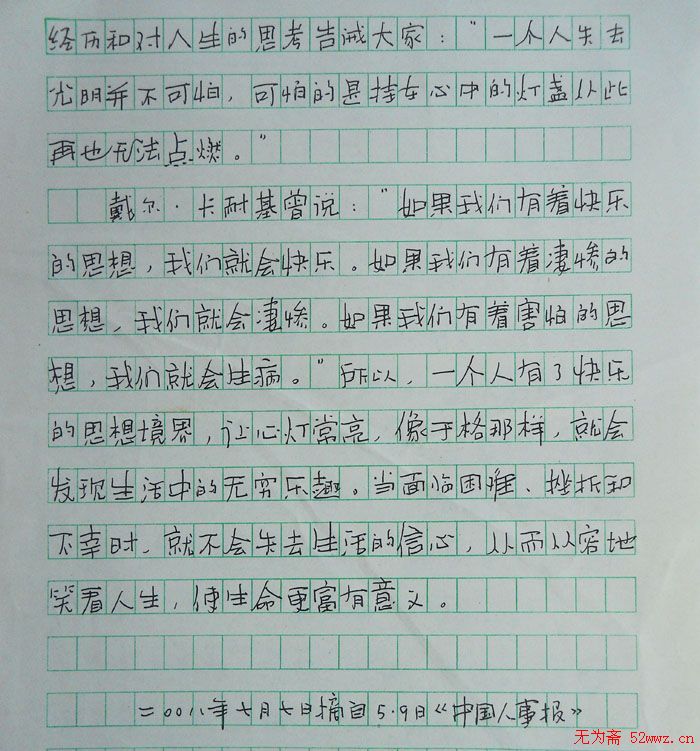 经历和对人生的思考告诫大家："一个人失去
光明并不可怕，可怕的是挂在心中的灯盏从此
再也无法点燃。"
戴尔·卡耐基曾说："如果我们有着快乐
的思想，我们就会快乐。如果我们有着凄惨的
思想，我们就会凄惨。如果我们有着害怕的思
想，我们就会生病。"所以，一个人有了快乐
的思想境界，让心灯常亮，像于格那样，就会
发现生活中的无穷乐趣。当面临困难、挫折和
不幸时，就不会失去生活的信心，从而从容地
笑看人生，使生命更富有意义。
二00八年七月七日摘自5.9日《中国人事报》
无为斋 52wwz.cn